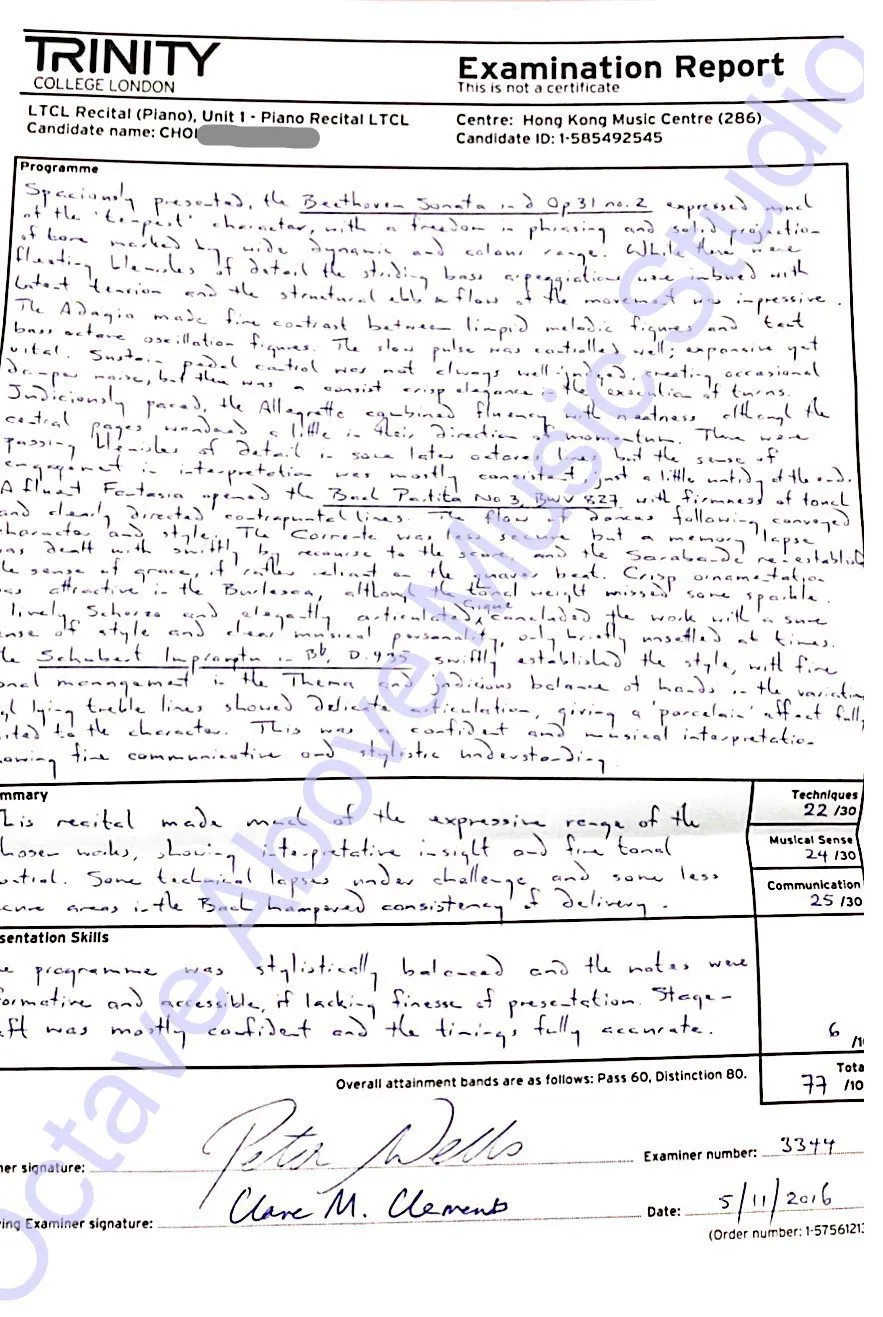 TRINITY
COLLEGE LONDON
Examination Report
This is not a certificate
LTCL Recital (Piano), Unit 1 - Piano Recital LTCL
Candidate name: CHOI
Centre: Hong Kong Music Centre (286)
Candidate ID: 1-585492545
Programme
Spaciously presented, the Beethoven Sonata in d Op 31 no. 2 expressed much
of the 'tempest' character, with a freedom in phrasing and solid projection
of tone marked by wide dynamic and colour range. While there were
fleeting blemishes of detail the striding bass arpeggiations were imbued with
latent tension and the structural ebb & flow of the movement was impressive.
The Adagio made fine contrast between limpid melodic figures and taut
bass octave oscillation figures. The slow pulse was controlled well; expansive yet
vital. Sustain pedal control was not always well-judged, creating occasional
damper noise, but there was a consist crisp elegance in the execution of turns.
Judiciously paced, the Allegretto combined fluency with neatness although the
central pages wandered a little in their direction of momentum. There were
passing blemishes of detail in some later octaves lines but the sense of
engagement in interpretation was mostly consistent just a little untidy at the end.
A fluent Fantasia opened the Bach Partita No 3, BWV 827 with firmness of tone
and clearly directed contrapuntal lines. The flow of dances following conveyed
character and style. The Corrente was less secure but a memory lapse
was dealt with swiftly by recourse to the score, and the Sarabande re-establish
sense of grace, if rather reliant on the quaver beat. Crisp ornamentation
was attractive in the Burlesca, although the tonal weight missed some sparkle.
lively Scherzo and elegantly articulated Gigue concluded the work with a sure
sense of style and clear musical personality, only briefly unsettled at times.
Schubert Impromptu in Bb, D.935 swiftly established the style, with fine
tonal management in the Thema and judicious balance of hands in the variation
lying treble lines showed delicate articulation, giving a 'porcelain' effect fully
to the character. This was a confident and musical interpretation
showing fine communicative and stylistic understanding.
mmary
This recital made much of the expressive range of the
chosen works, showing interpretative insight and fine tonal
control. Some technical lapses under challenge and some less
secure areas in the Bach hampered consistency of delivery.
Techniques
22 /30
Musical Sense
24 /30
Communication
25 /30
sentation Skills
programme was stylistically balanced and the notes were
formative and accessible, if lacking finesse of presentation. Stage-
aft was mostly confident and the timings fully accurate.
6 /10
Overall attainment bands are as follows: Pass 60, Distinction 80.
Tota
77 /10
ner signature: Peter Wells
Examiner number: 3344
ing Examiner signature: Clare M. Clements
Date: 5/11/2016
(Order number: 1-57561213
Octave Above Music Studio